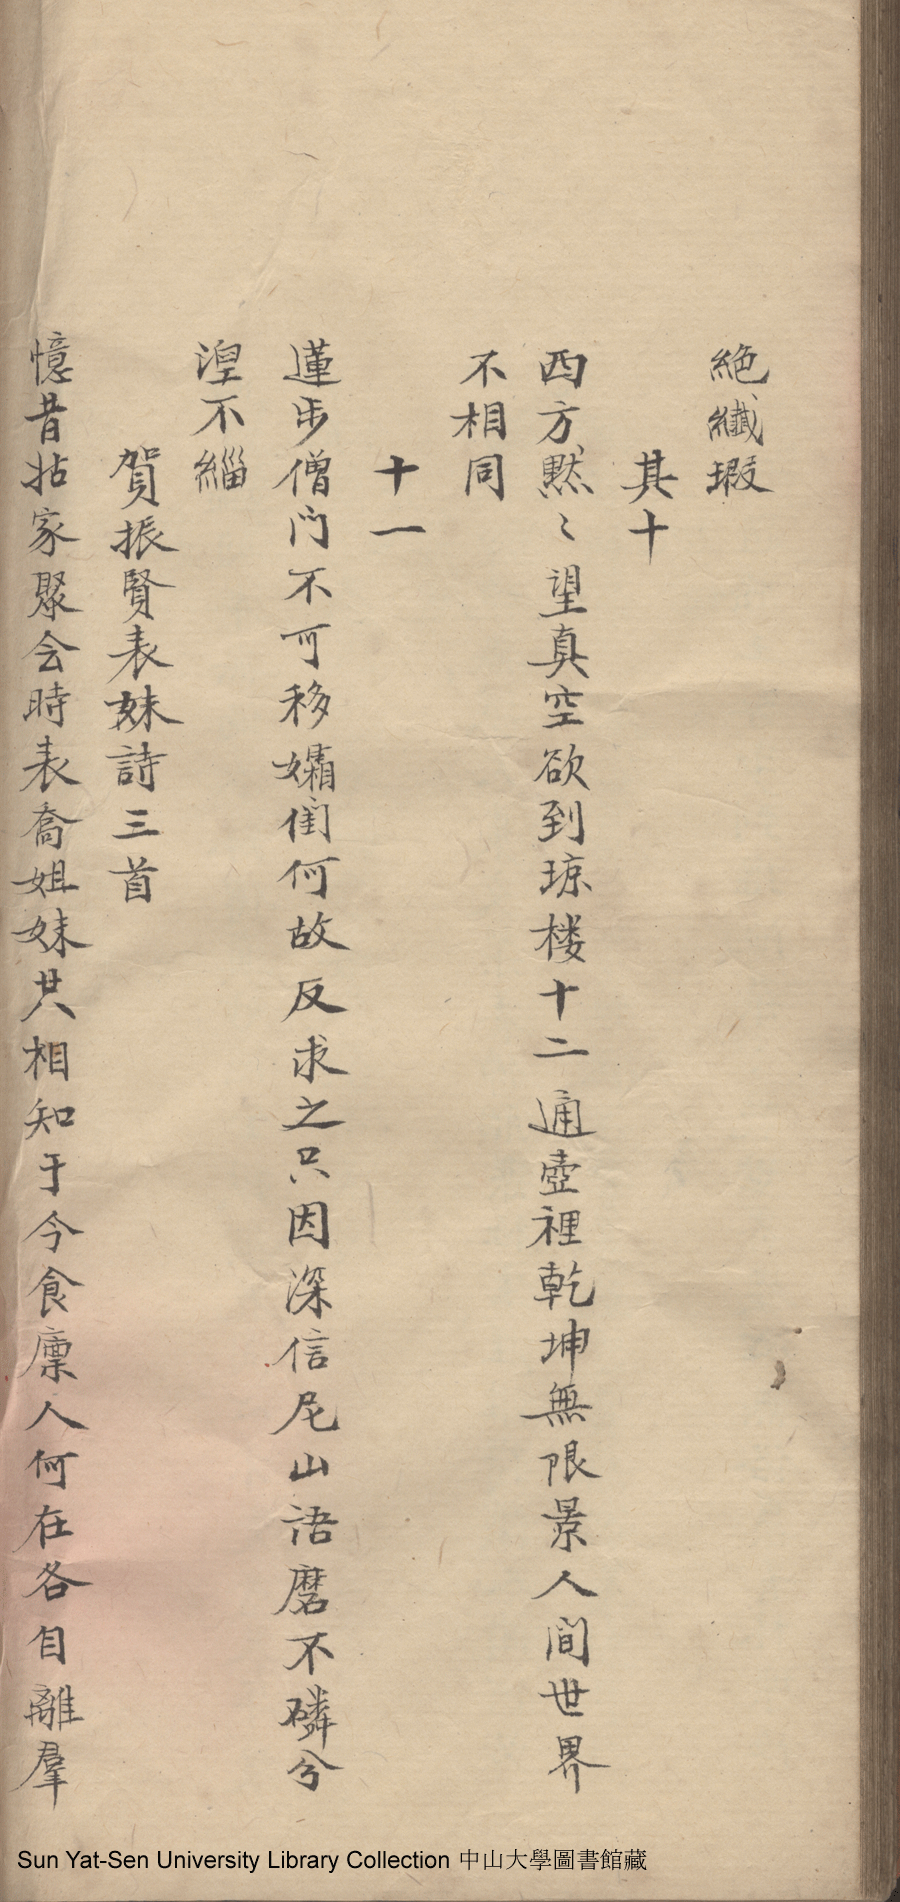 絶纖瑕
其十
西方黙〻望真空欲到琼楼十二通壺裡乾坤無限景人间世界
不相同
十一
蓮步僧门不可移孀闺何故反求之只因深信尼山语磨不磷兮
湼不緇
賀振賢表妹詩三首
憶昔拈家聚会時表喬姐妹共相知于今食廪人何在各自離羣
Sun Yat-Sen University Library Collection 中山大學圖書館藏